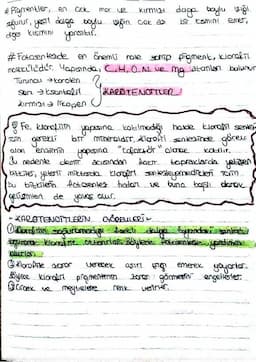 * Pigmentler, en çok mor ve kırmızı dalga boylu ışığı
soğurur, yeşil dalga boylu ışığın çok az bir kısmını emer,
diğer kısmını yansıtır.
# Fotosentezde en önemli role sahip pigment, klorofil
molekülüdür. Yapısında, C, H, O, N ve Mg atomları bulunur
Turuncu → karoten
Sarı → ksantofil
kırmızı → likopen
KAROTENOİTLER
Fe, klorofilin yapısına katılmadığı halde klorofil sentezi
için gerekli bir mineraldir. Klorofil sentezinde görev
alan enzimin yapısına "cofaktör" olarak katılır.
Bu nedenle demir açısından fakir topraklarda yetişen
bitkiler, yeterli miktarda klorofil sentezleyemedikleri için
bu bitkilerin fotosentez hızları ve buna bağlı olarak
gelişimleri de yavaş olur.
- KAROTENOİTLERİN GÖREVLERİ -
① Klorofilin soğuramadığı farklı dalga boyundaki ışınları
soğurarak klorofile aktarırlar. Böylece fotosenteze yardımcı
olurlar.
② Klorofile zarar verecek aşırı ışığı emerek yayarlar.
Böylece klorofil pigmentinin zarar görmesini engellerler.
③ Çiçek ve meyvelere renk verirler.